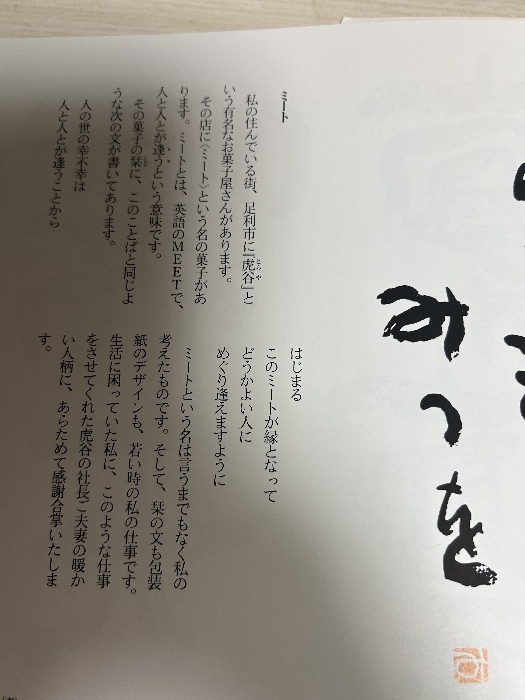 ミート
私の住んでいる街、足利市に『虎谷』と
いう有名なお菓子屋さんがあります。
その店に〈ミート〉という名の菓子があ
ります。ミートとは、英語のMEETで、
人と人とが逢うという意味です。
その菓子の栞に、このことばと同じよ
うな次の文が書いてあります。
人の世の幸不幸は
人と人とが逢うことから
はじまる
このミートが縁となって
どうかよい人に
めぐり逢えますように
ミートという名は言うまでもなく私の
考えたものです。そして、栞の文も包装
紙のデザインも、若い時の私の仕事です。
生活に困っていた私に、このような仕事
をさせてくれた虎谷の社長ご夫妻の暖か
い人柄に、あらためて感謝合掌いたしま
す。